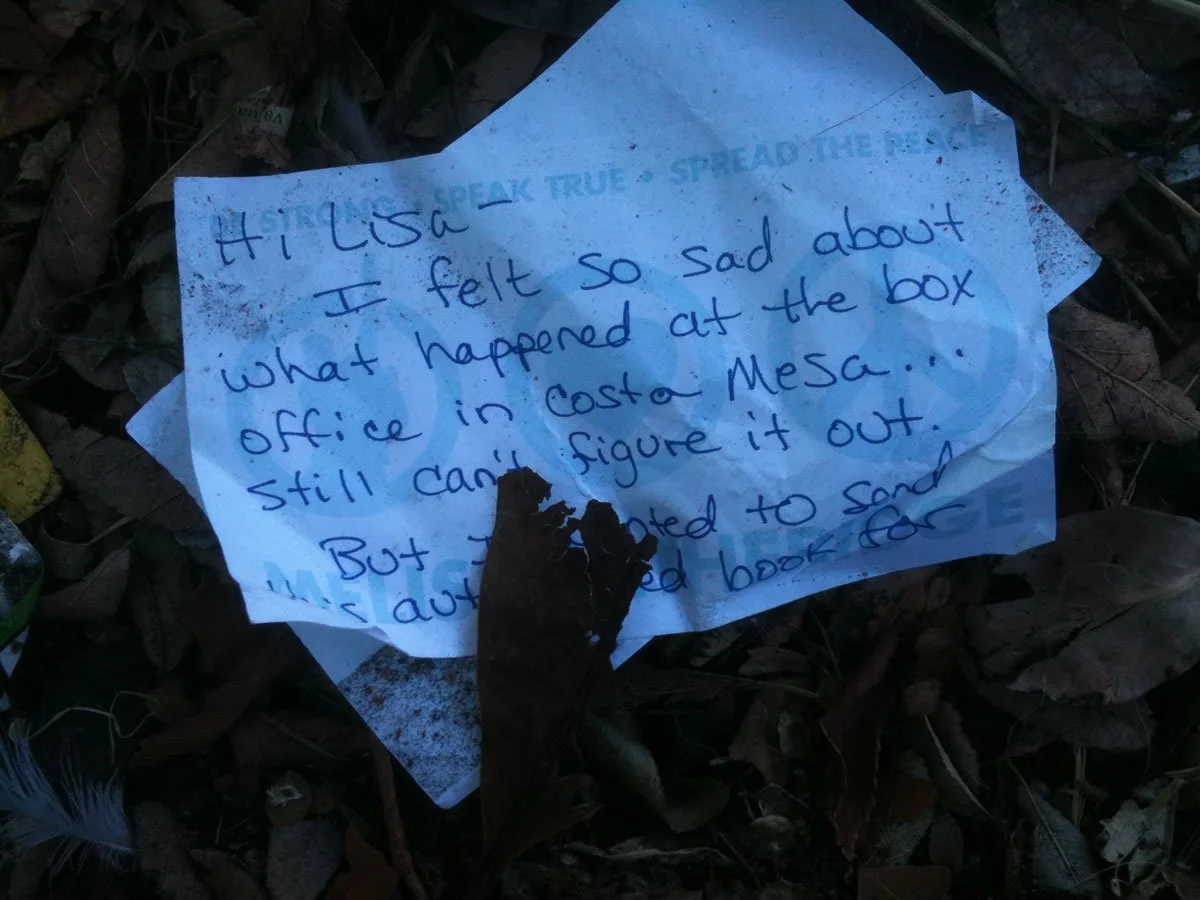 STRONG • SPEAK TRUE • SPREAD THE PEACE
Hi Lisa -
I felt so sad about
what happened at the box
office in Costa Mesa...
still can't figure it out.
But I to send
book for